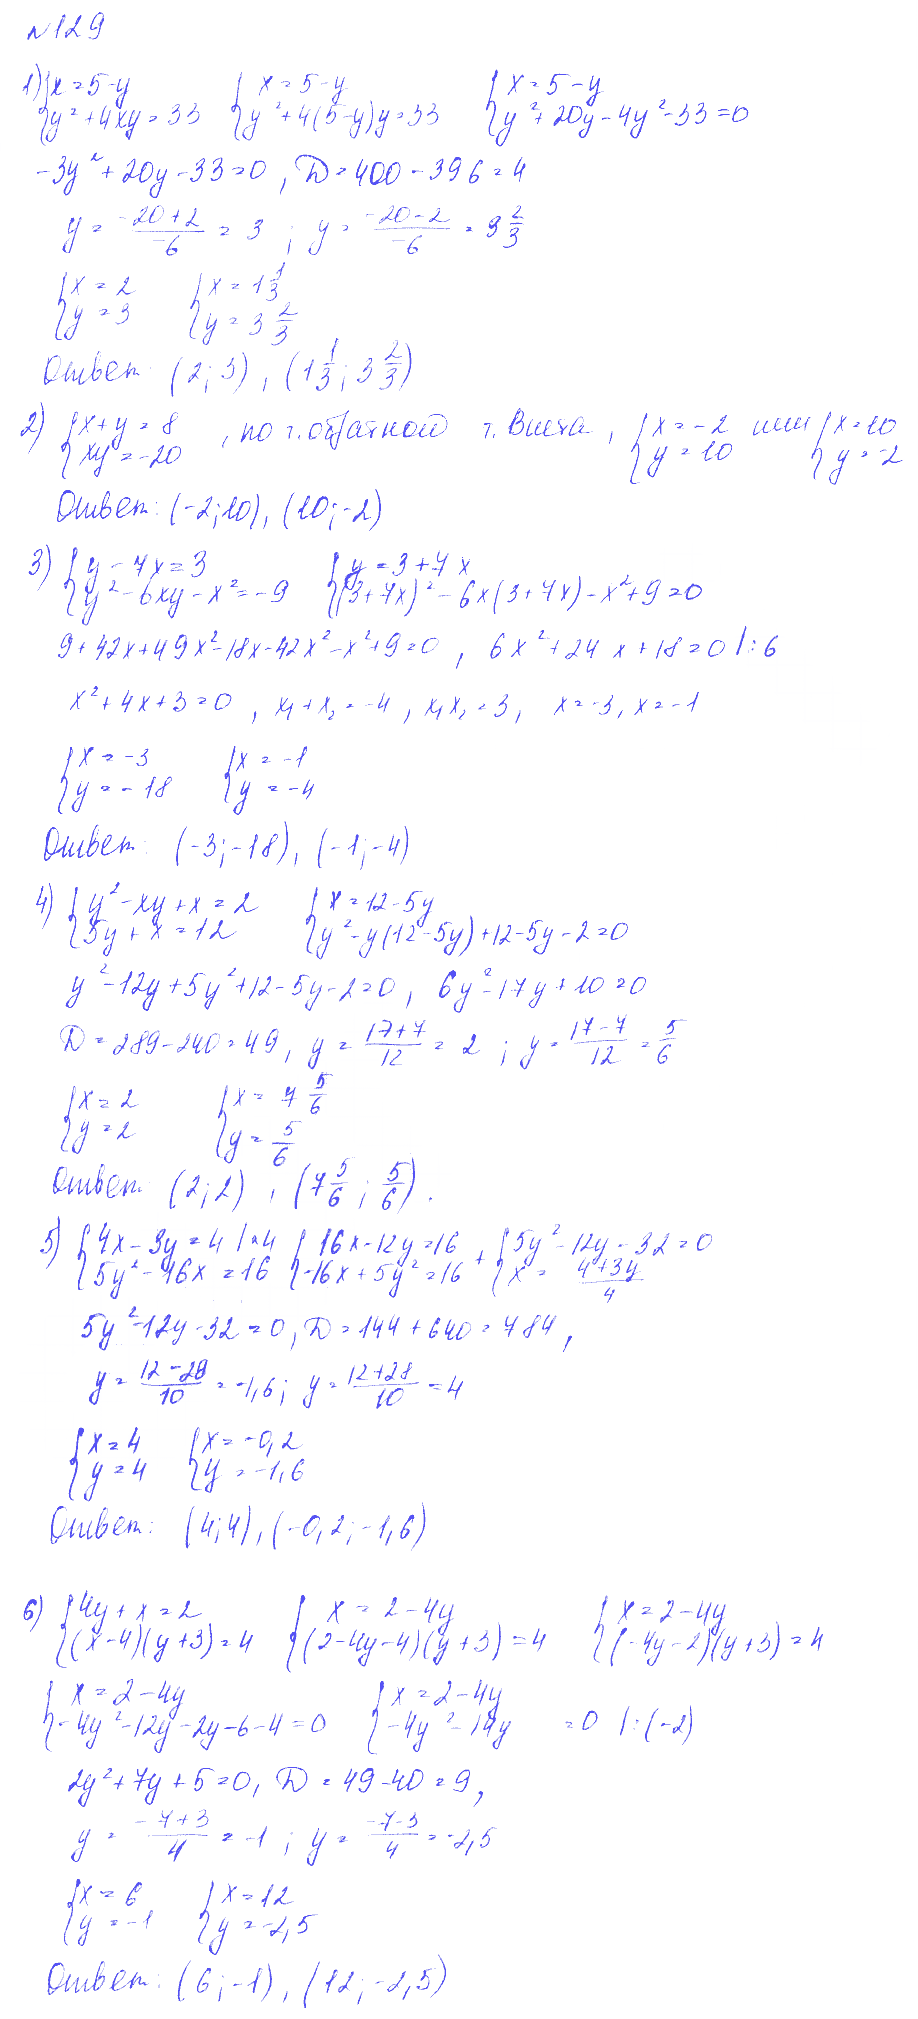 №129
1) {x = 5-y {x = 5-y {x = 5-y
{y² + 4xy = 33 {y² + 4(5-y)y = 33 {y² + 20y - 4y² - 33 = 0
-3y² + 20y - 33 = 0, D = 400 - 396 = 4
y = (-20+2)/(-6) = 3 ; y = (-20-2)/(-6) = 3 2/3
{x = 2 {x = 1 1/3
{y = 3 {y = 3 2/3
Ответ: (2; 3), (1 1/3; 3 2/3)
2) {x+y = 8 , по т. обратной т. Виета, {x = -2 или {x = 10
{xy = -20 {y = 10 {y = -2
Ответ: (-2; 10), (10; -2)
3) {y - 7x = 3 {y = 3 + 7x
{y² - 6xy - x² = -9 {(3+7x)² - 6x(3+7x) - x² + 9 = 0
9 + 42x + 49x² - 18x - 42x² - x² + 9 = 0, 6x² + 24x + 18 = 0 |:6
x² + 4x + 3 = 0, x₁ + x₂ = -4, x₁x₂ = 3, x = -3, x = -1
{x = -3 {x = -1
{y = -18 {y = -4
Ответ: (-3; -18), (-1; -4)
4) {y² - xy + x = 2 {x = 12 - 5y
{5y + x = 12 {y² - y(12-5y) + 12 - 5y - 2 = 0
y² - 12y + 5y² + 12 - 5y - 2 = 0, 6y² - 17y + 10 = 0
D = 289 - 240 = 49, y = (17+7)/12 = 2 ; y = (17-7)/12 = 5/6
{x = 2 {x = 7 5/6
{y = 2 {y = 5/6
Ответ: (2; 2), (7 5/6; 5/6).
5) {4x - 3y = 4 |·4 {16x - 12y = 16 + {5y² - 12y - 32 = 0
{5y² - 16x = 16 {-16x + 5y² = 16 {x = (4+3y)/4
5y² - 12y - 32 = 0, D = 144 + 640 = 784,
y = (12-28)/10 = -1,6; y = (12+28)/10 = 4
{x = 4 {x = -0,2
{y = 4 {y = -1,6
Ответ: (4; 4), (-0,2; -1,6)
6) {4y + x = 2 {x = 2 - 4y {x = 2 - 4y
{(x-4)(y+3) = 4 {(2-4y-4)(y+3) = 4 {(-4y-2)(y+3) = 4
{x = 2 - 4y {x = 2 - 4y
{-4y² - 12y - 2y - 6 - 4 = 0 {-4y² - 14y = 0 |:(-2)
2y² + 7y + 5 = 0, D = 49 - 40 = 9,
y = (-7+3)/4 = -1 ; y = (-7-3)/4 = -2,5
{x = 6 {x = 12
{y = -1 {y = -2,5
Ответ: (6; -1), (12; -2,5)